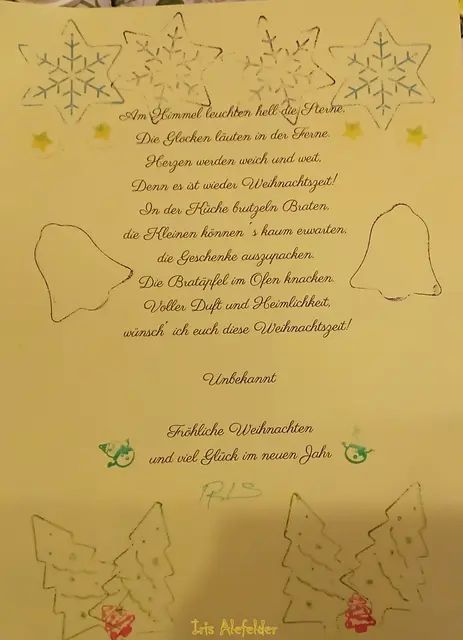 Am Himmel leuchten hell die Sterne.
Die Glocken läuten in der Ferne.
Herzen werden weich und weit,
Denn es ist wieder Weihnachtszeit!
In der Küche brutzeln Braten,
die Kleinen können´s kaum erwarten,
die Geschenke auszupacken.
Die Bratäpfel im Ofen knacken.
Voller Duft und Heimlichkeit,
wünsch´ ich euch diese Weihnachtszeit!
Unbekannt
Fröhliche Weihnachten
und viel Glück im neuen Jahr
Iris Alefelder